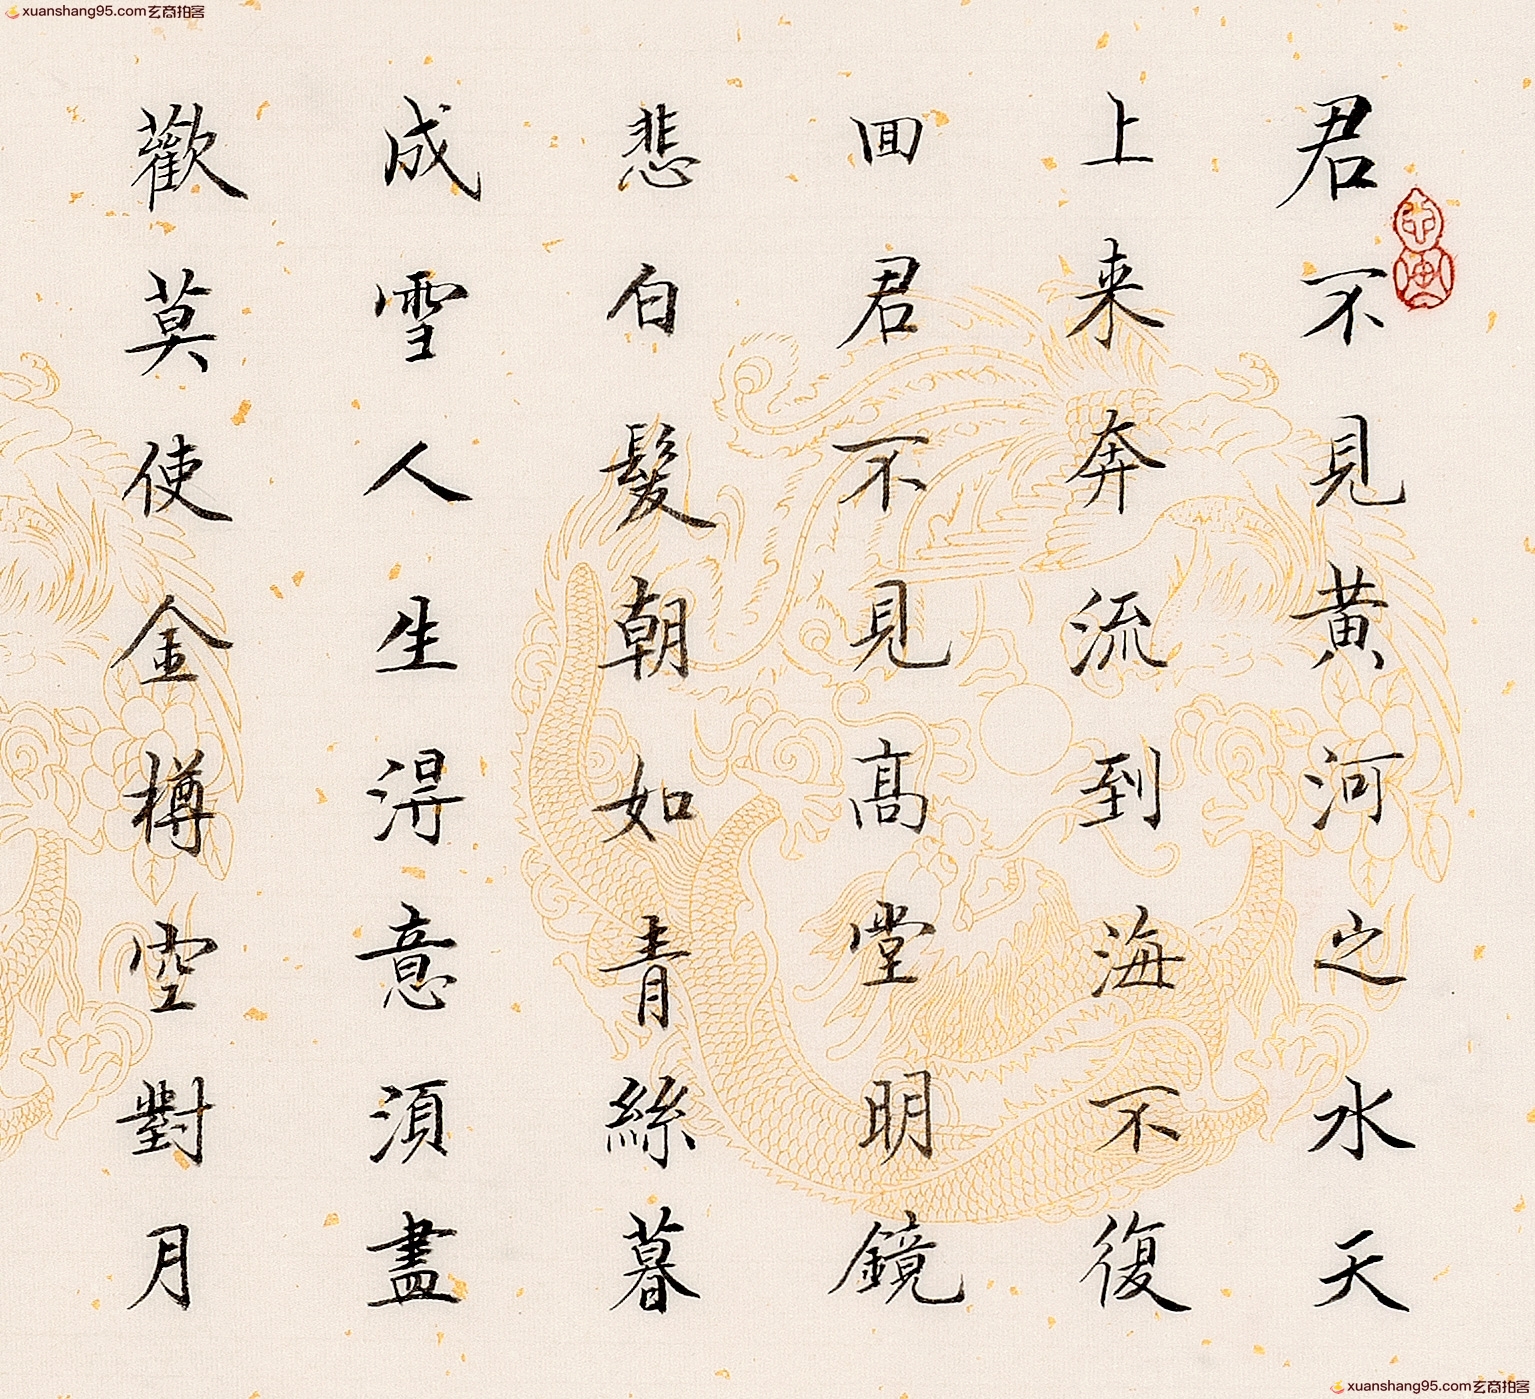 君不見黃河之水天
上来奔流到海不復
回君不見高堂明鏡
悲白髮朝如青絲暮
成雪人生淂意須盡
歡莫使金樽空對月
xuanshang95.com玄商拍客
xuanshang95.com玄商拍客